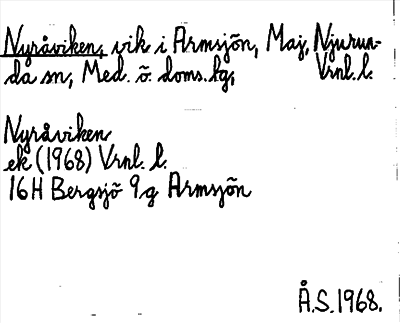 Nyråviken, vik i Armsjön, Maj, Njurun-
da sn, Med. ö. doms.hg, Vrnl. l.
Nyråviken
ek (1968) Vrnl. l.
16H Bergsjö 9g Armsjön
Å.S. 1968.